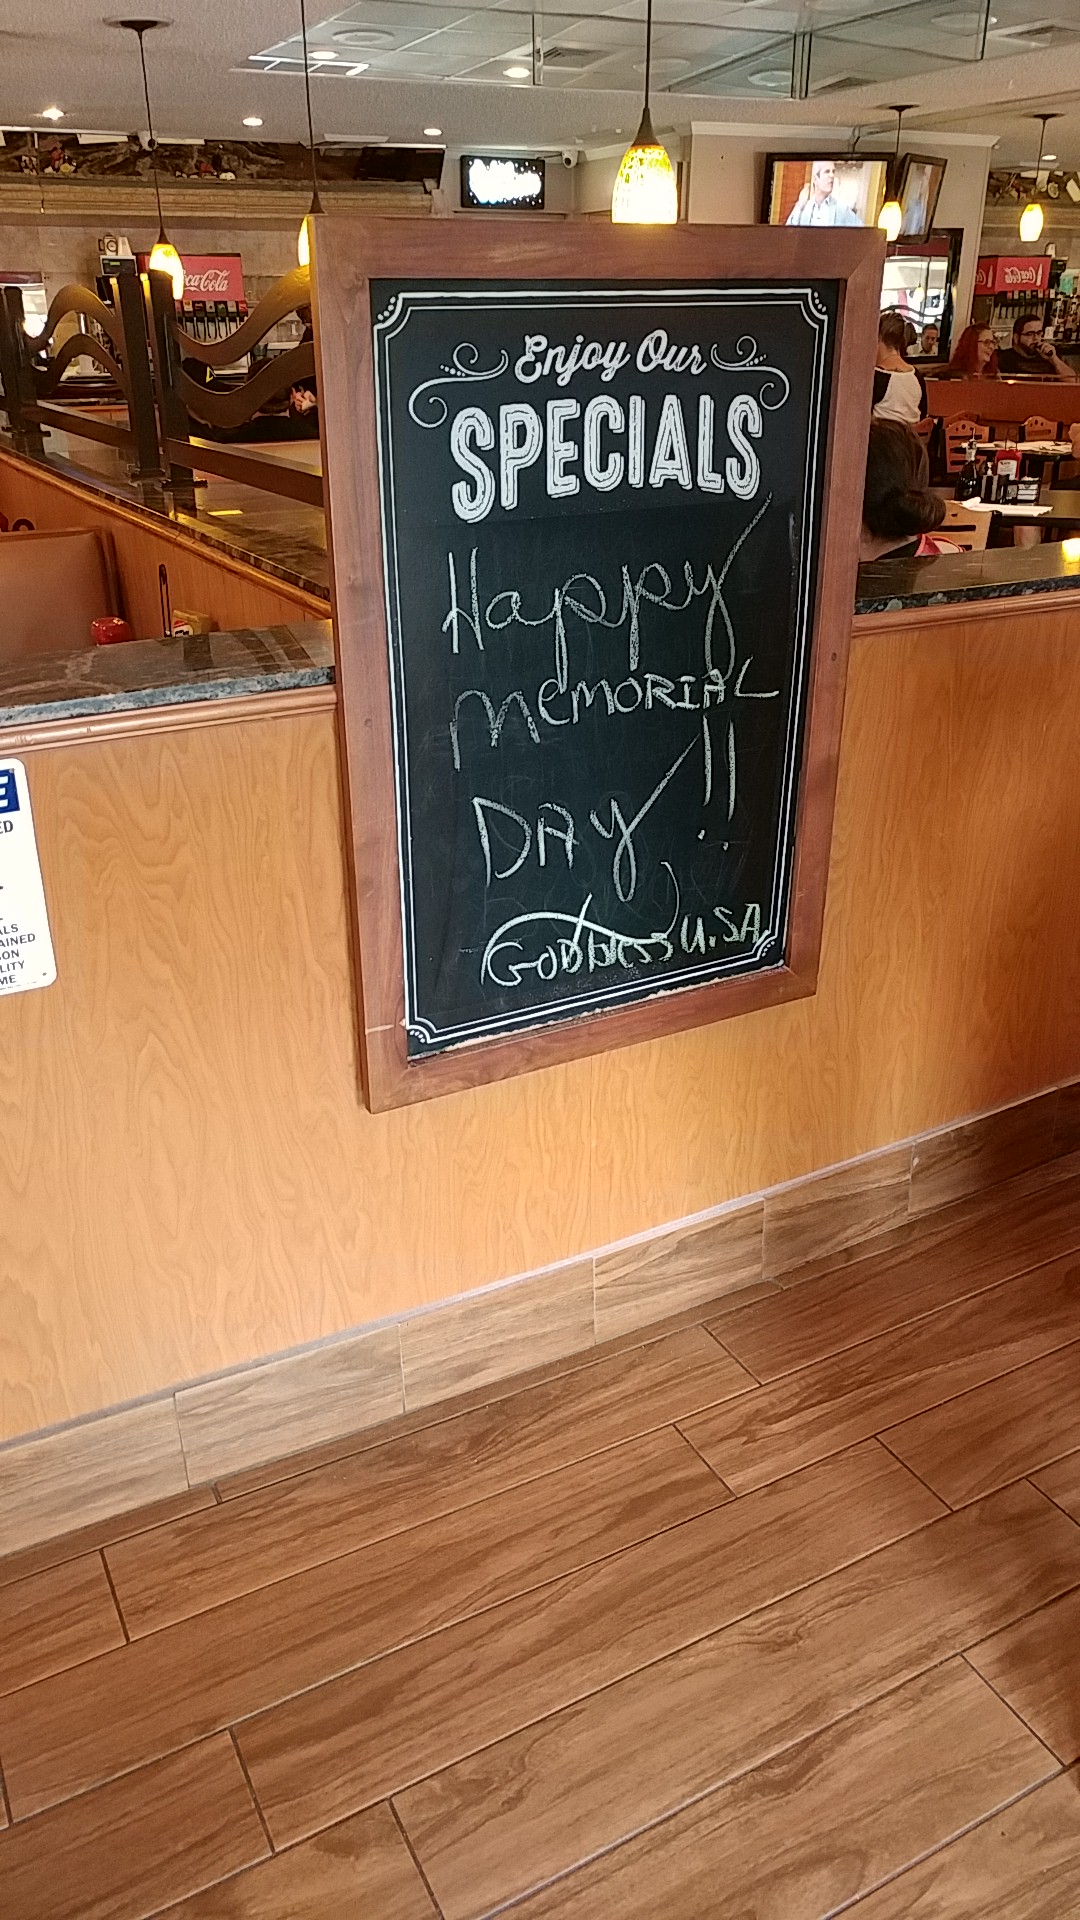 Enjoy Our
SPECIALS
Happy
MEMORIAL
DAY!!
GODBLESS U.SA
Coca-Cola
Coca-Cola
ED
ALS
AINED
ON
LITY
ME